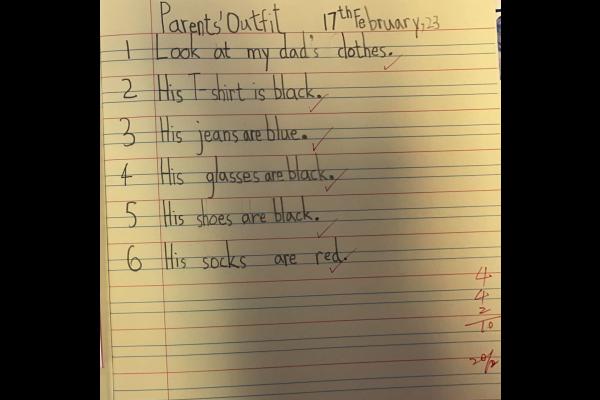 Parents' Outfit 17th February, 23
1 Look at my dad's clothes.
2 His T-shirt is black.
3 His jeans are blue.
4 His glasses are black.
5 His shoes are black.
6 His socks are red.
4
4
2
10